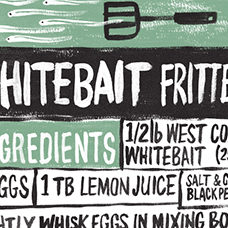 HITEBAIT FRITTE
GREDIENTS
1/2lb WEST CO
WHITEBAIT (2
GGS
1 TB LEMON JUICE
SALT & G
BLACK PE
HTLY WHISK EGGS IN MIXING BO